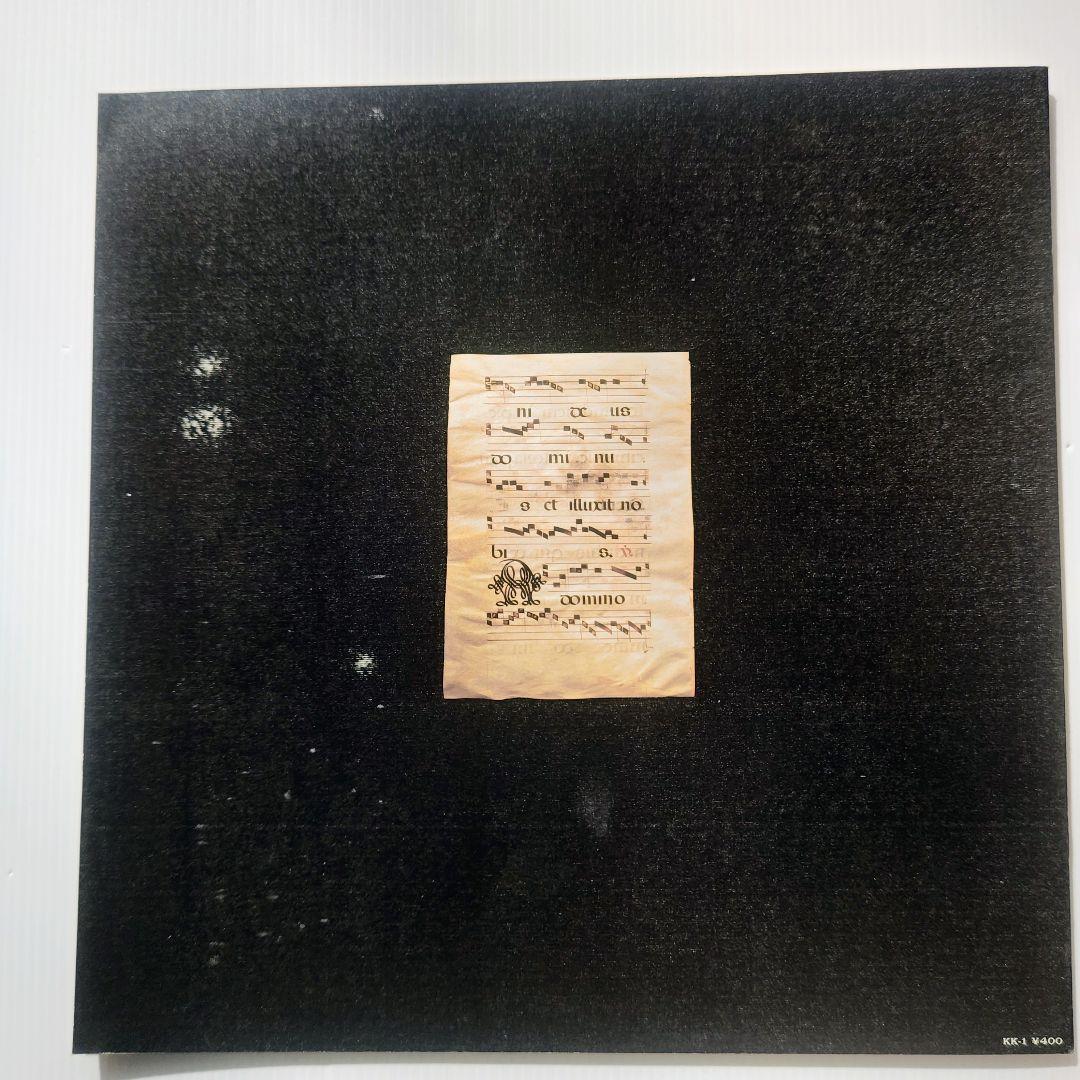 ni de us
do mi nu
s et illuxit no
bis. ℣.
domino
KK-1 ¥400